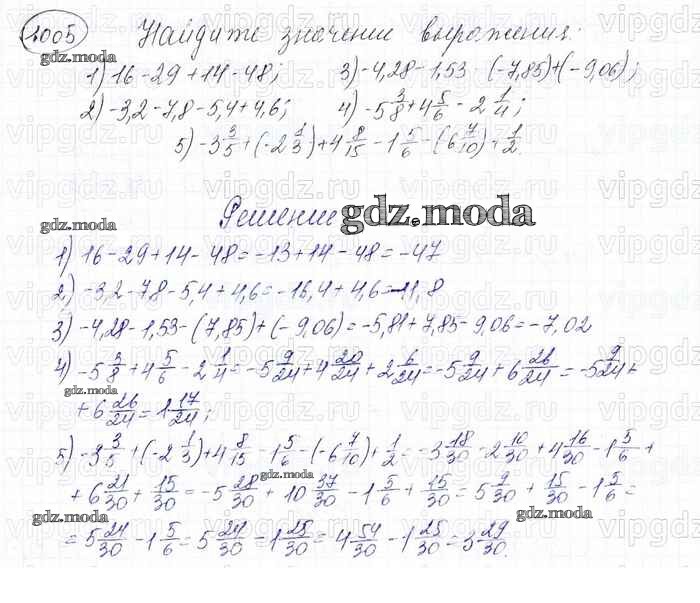 1005 Найдите значение выражения:
1) 16-29+14-48; 3) -4,28-1,53-(-7,85)+(-9,06);
2) -3,2-7,8-5,4+4,6; 4) -5 3/8+4 5/6-2 1/4;
5) -3 3/5+(-2 1/3)+4 8/15-1 5/6-(6 7/10)+1/2.
Решение
gdz.moda
1) 16-29+14-48=-13+14-48=-47
2) -3,2-7,8-5,4+4,6=-16,4+4,6=-11,8
3) -4,28-1,53-(7,85)+(-9,06)=-5,81+7,85-9,06=-7,02
4) -5 3/8+4 5/6-2 1/4=-5 9/24+4 20/24+2 6/24=-5 9/24+6 26/24=-5 9/24+
+6 26/24=1 17/24;
5) -3 3/5+(-2 1/3)+4 8/15-1 5/6-(-6 7/10)+1/2=-3 18/30-2 10/30+4 16/30-1 5/6+
+6 21/30+15/30=-5 28/30+10 37/30-1 5/6+15/30=5 9/30+15/30-1 5/6=
=5 24/30-1 5/6=5 24/30-1 25/30=4 54/30-1 25/30=3 29/30.